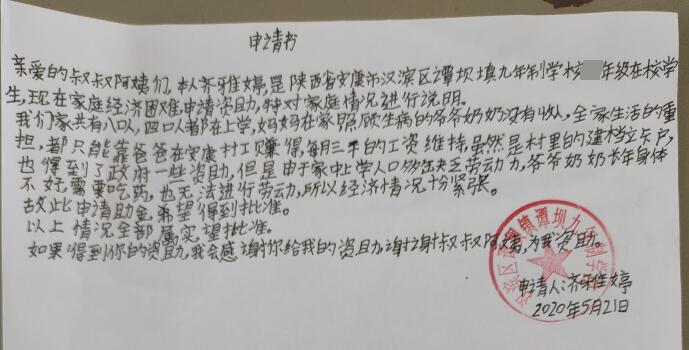 申请书
亲爱的叔叔阿姨们，本人齐雅婷是陕西省安康市汉滨区谭坝填九年制学校 年级在校学
生，现在家庭经济困难申请资助，特对家庭情况进行说明。
我们家共有八口人，四口人都在上学，妈妈在家照顾生病的爷爷奶奶没有收入，全家生活的重
担，都只能靠爸爸在安康打工赚得，每月三千的工资维持，虽然是村里的建档立卡户，
也得到了政府一些资助，但是由于家中上学人口多缺乏劳动力，爷爷奶奶长年身体
不好，需要吃药，也无法进行劳动，所以经济情况十分紧张。
故此申请助金，希望得到批准。
以上情况全部属实望批准。
如果得到你的资助，我会感谢你给我的资助，谢谢叔叔阿姨，为我资助。
申请人：齐雅婷
2020年5月21日